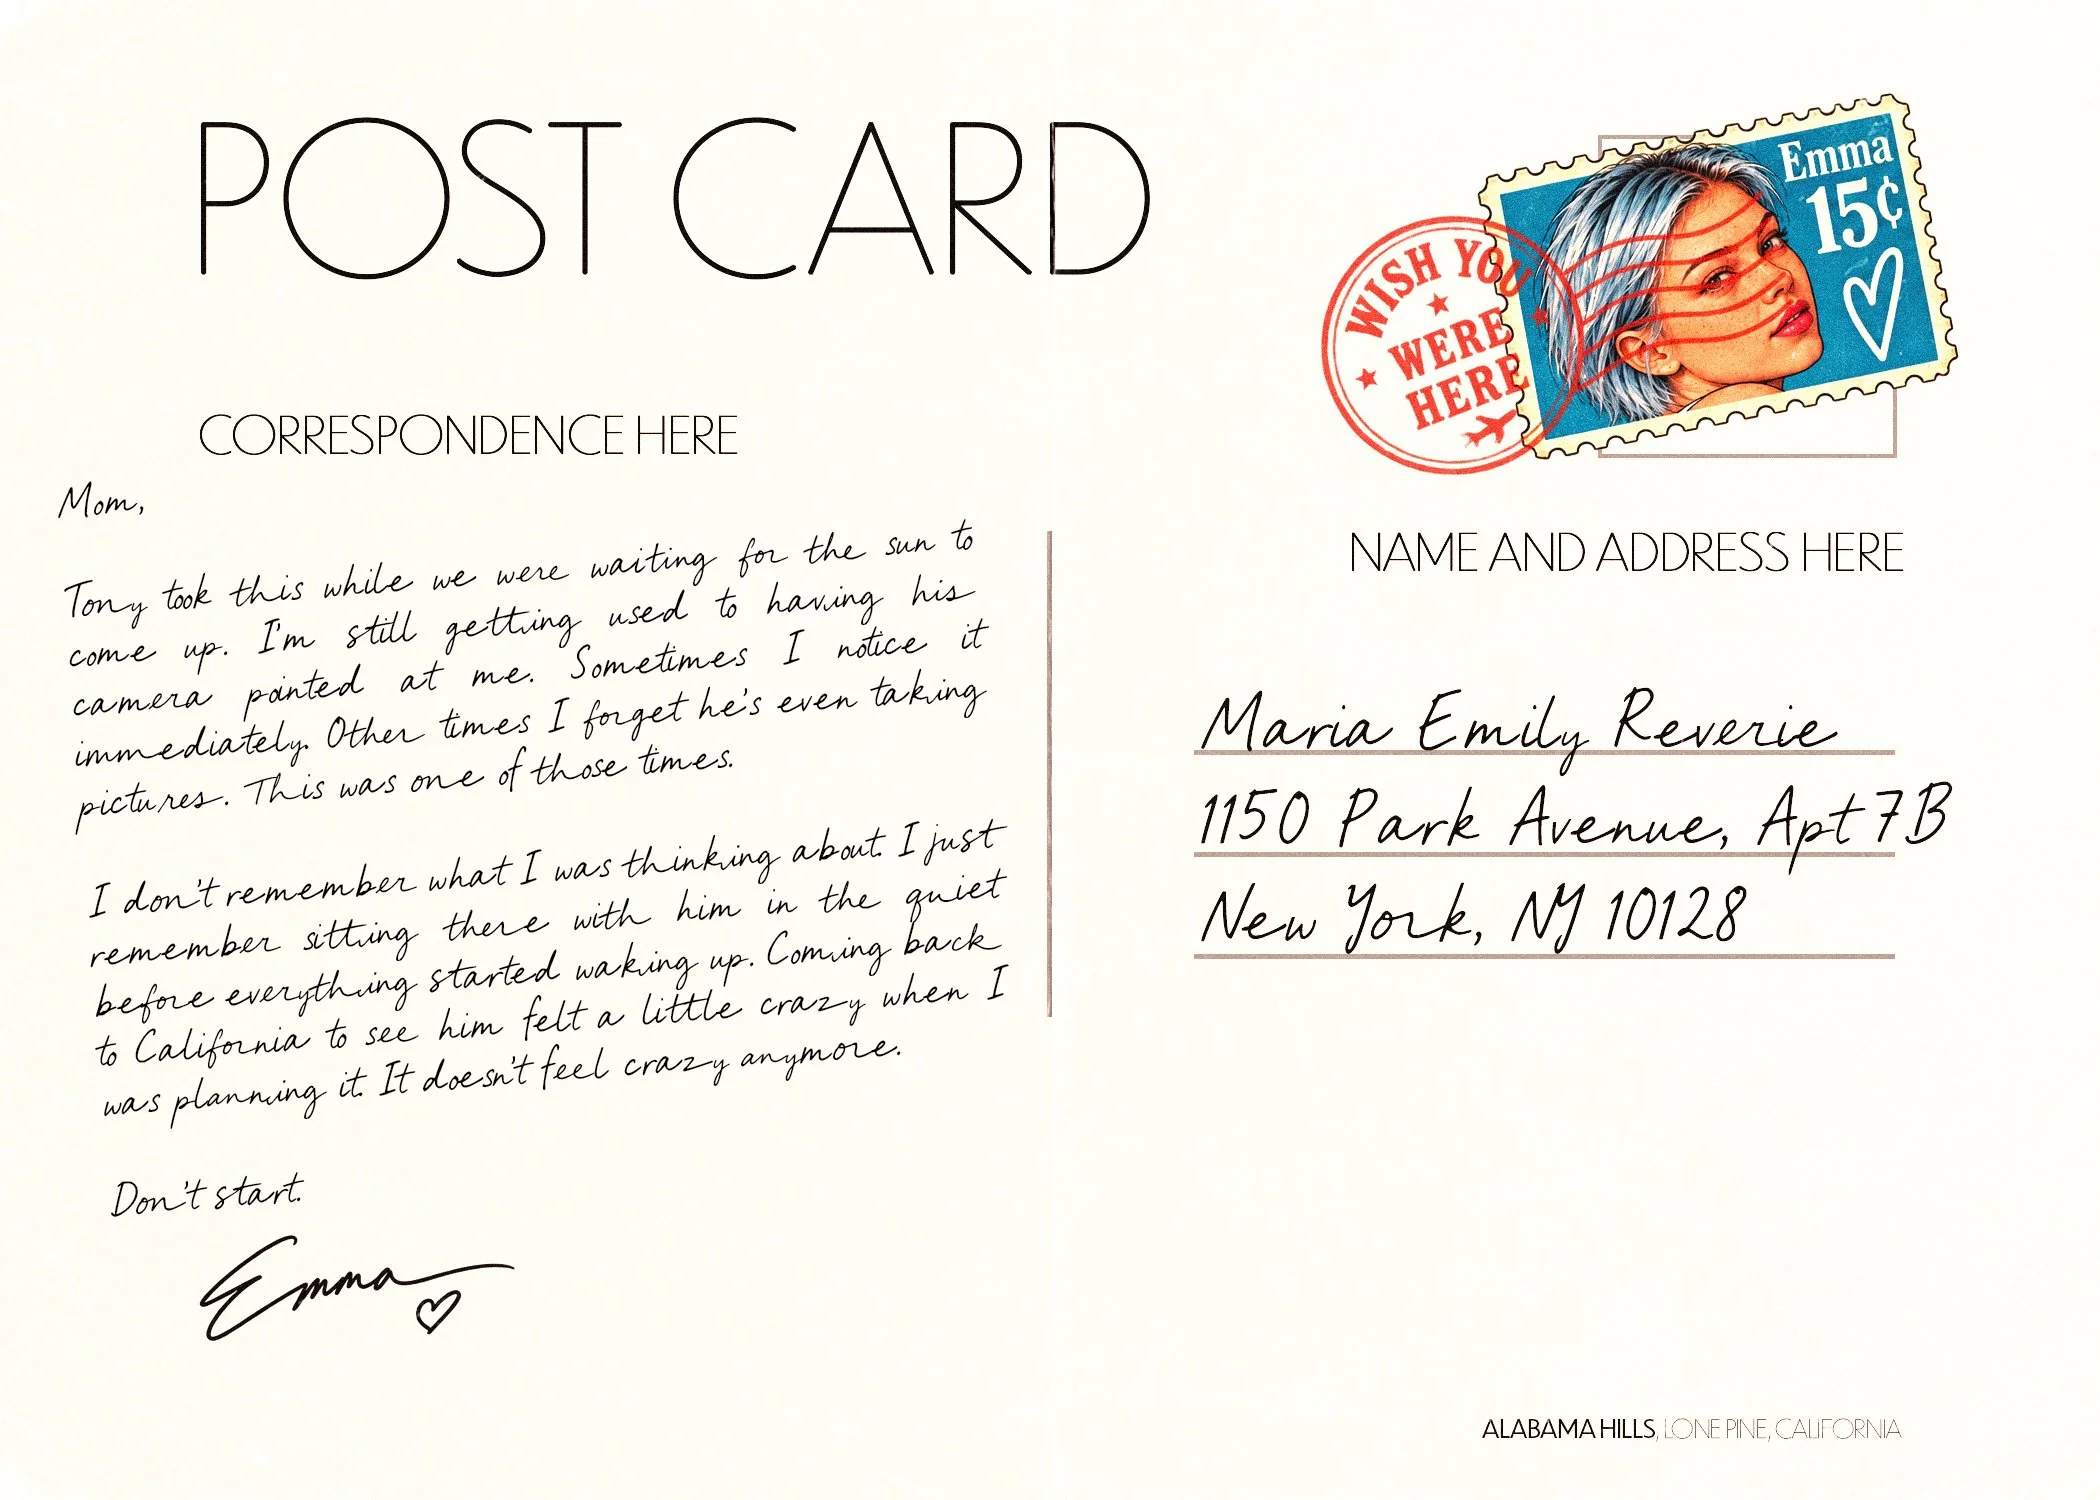 POST CARD
Emma
15¢
WISH YOU
WERE
HERE
CORRESPONDENCE HERE
Mom,
Tony took this while we were waiting for the sun to
come up. I'm still getting used to having his
camera pointed at me. Sometimes I notice it
immediately. Other times I forget he's even taking
pictures. This was one of those times.
I don't remember what I was thinking about. I just
remember sitting there with him in the quiet
before everything started waking up. Coming back
to California to see him felt a little crazy when I
was planning it. It doesn't feel crazy anymore.
Don't start.
Emma
NAME AND ADDRESS HERE
Maria Emily Reverie
1150 Park Avenue, Apt 7B
New York, NY 10128
ALABAMA HILLS, LONE PINE, CALIFORNIA